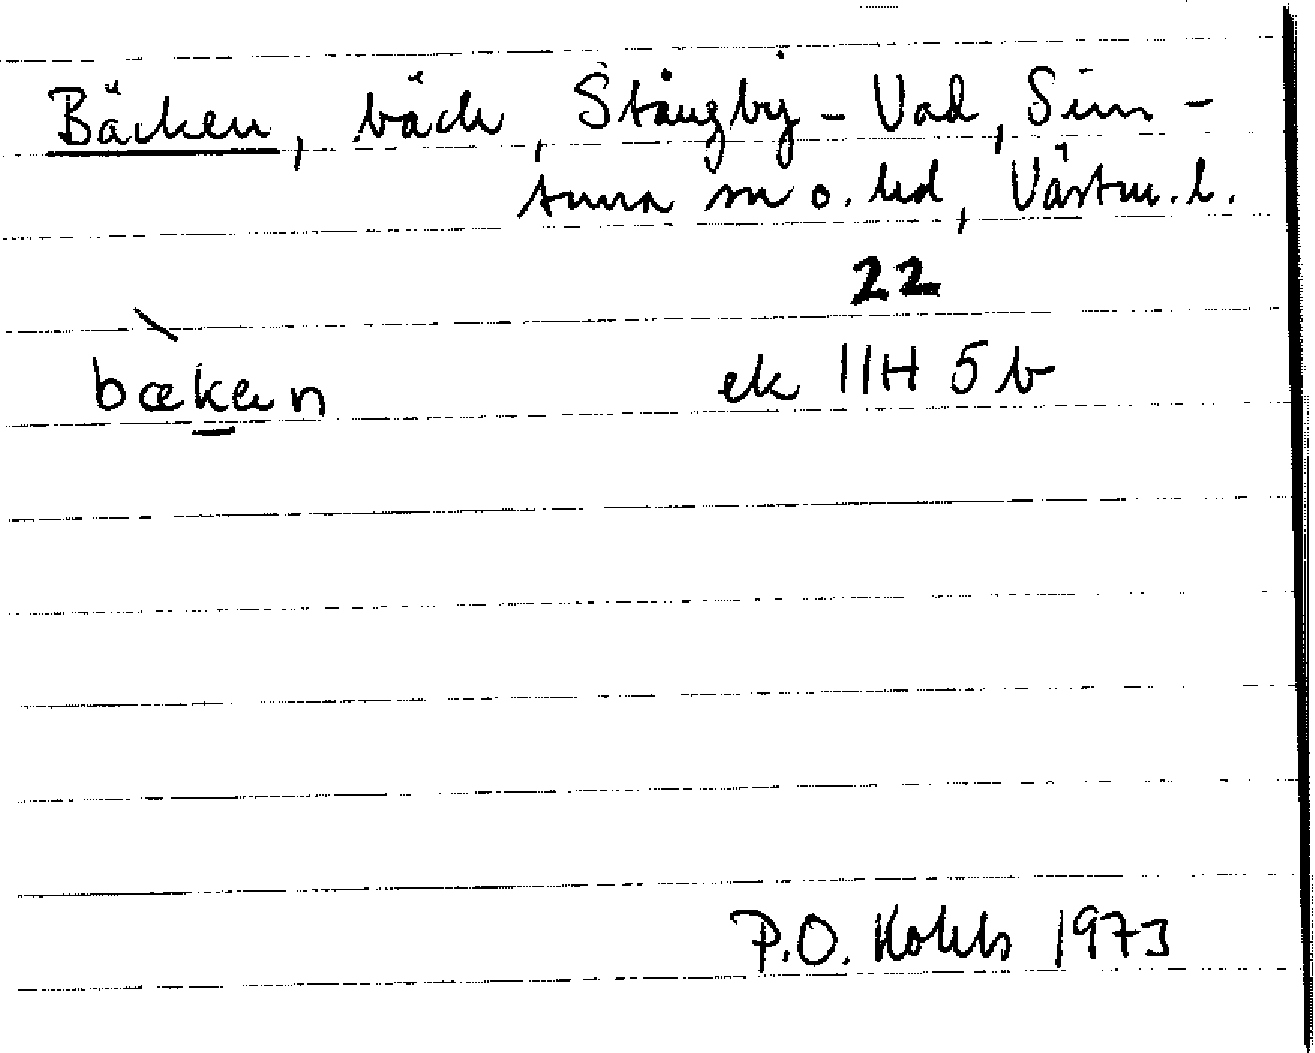 Bäcken, bäck, Stångby - Vad, Sim-
tuna sn o. hd, Västm. l.
22
bækæn ek 11H 5b
P.O. 1973